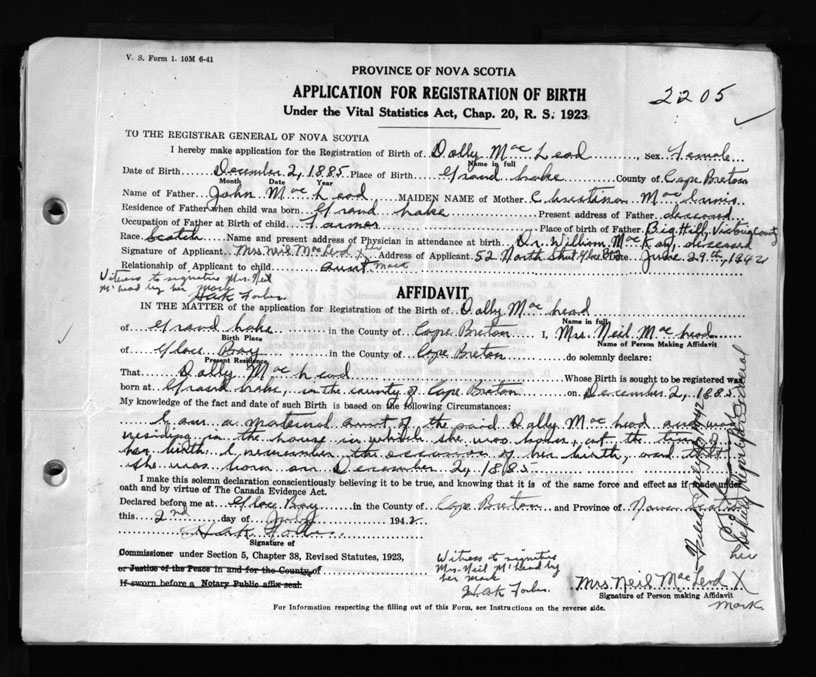 V. S. Form 1. 10M 6-41
PROVINCE OF NOVA SCOTIA
APPLICATION FOR REGISTRATION OF BIRTH
2205
Under the Vital Statistics Act, Chap. 20, R. S. 1923
TO THE REGISTRAR GENERAL OF NOVA SCOTIA
I hereby make application for the Registration of Birth of Dolly Mac Leod, Sex Female
Name in full
Date of Birth December 2, 1885 Place of Birth Grand Lake County of Cape Breton
Month Date Year
Name of Father John Mac Leod MAIDEN NAME of Mother Christina Mac
Residence of Father when child was born Grand Lake Present address of Father deceased
Occupation of Father at Birth of child Farmer Place of birth of Father Big Hill, Victoria County
Race Scotch Name and present address of Physician in attendance at birth Dr. William MacKay, deceased
Signature of Applicant Mrs. Neil MacLeod X her mark Address of Applicant 52 North Street Date June 29th, 1942
Relationship of Applicant to child aunt
Witness to signature Mrs. Neil
McLeod by her mark
AFFIDAVIT
IN THE MATTER of the application for Registration of the Birth of Dolly Mac Leod
Name in full
of Grand Lake in the County of Cape Breton I, Mrs. Neil Mac Leod
Birth Place Name of Person Making Affidavit
of Glace Bay in the County of Cape Breton do solemnly declare:
Present Residence
That Dolly Mac Leod Whose Birth is sought to be registered was
born at Grand Lake, in the county of Cape Breton on December 2, 1885
My knowledge of the fact and date of such Birth is based on the following Circumstances:
I am a maternal aunt of the said Dolly Mac Leod and was
residing in the house in which she was born, at the time of
her birth. I remember the occasion of her birth, and that
she was born on December 2, 1885
I make this solemn declaration conscientiously believing it to be true, and knowing that it is of the same force and effect as if made under
oath and by virtue of The Canada Evidence Act.
Declared before me at Glace Bay in the County of Cape Breton and Province of Nova Scotia
this 2nd day of July 1942
Signature of
Commissioner under Section 5, Chapter 38, Revised Statutes, 1923,
or Justice of the Peace in and for the County of
If sworn before a Notary Public affix seal.
Witness to signature
Mrs. Neil McLeod by
her mark
her
Mrs Neil MacLeod X
mark
Signature of Person making Affidavit
For Information respecting the filling out of this Form, see Instructions on the reverse side.
Deputy Registrar General